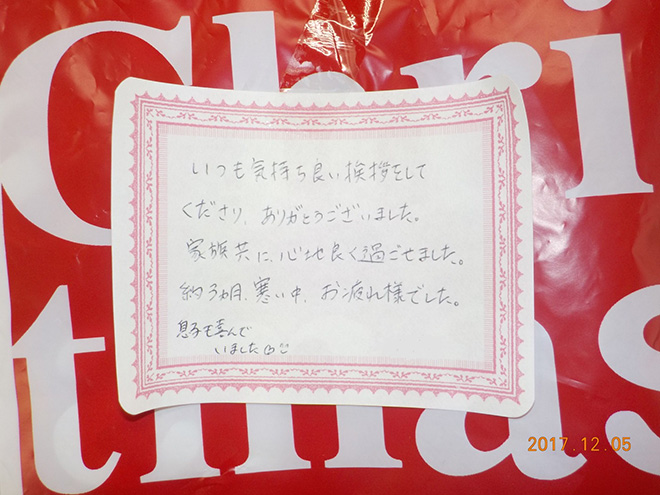 Chri
いつも気持ち良い挨拶をして
くださり、ありがとうございました。
家族共に、心地良く過ごせました。
約3ヵ月、寒い中、お疲れ様でした。
息子も喜んで
いました
tmas
2017.12.05